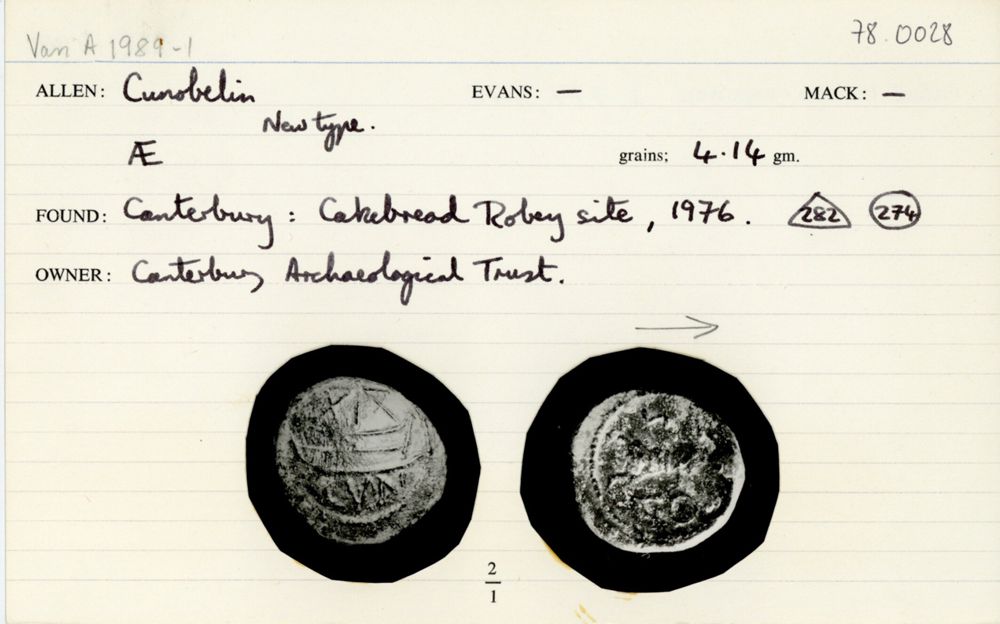 Van A 1989-1
78.0028
ALLEN: Cunobelin EVANS: — MACK: —
New type.
Æ grains; 4.14 gm.
FOUND: Canterbury: Cakebread Robey site, 1976. 282 274
OWNER: Canterbury Archaeological Trust.
CVN
2
1